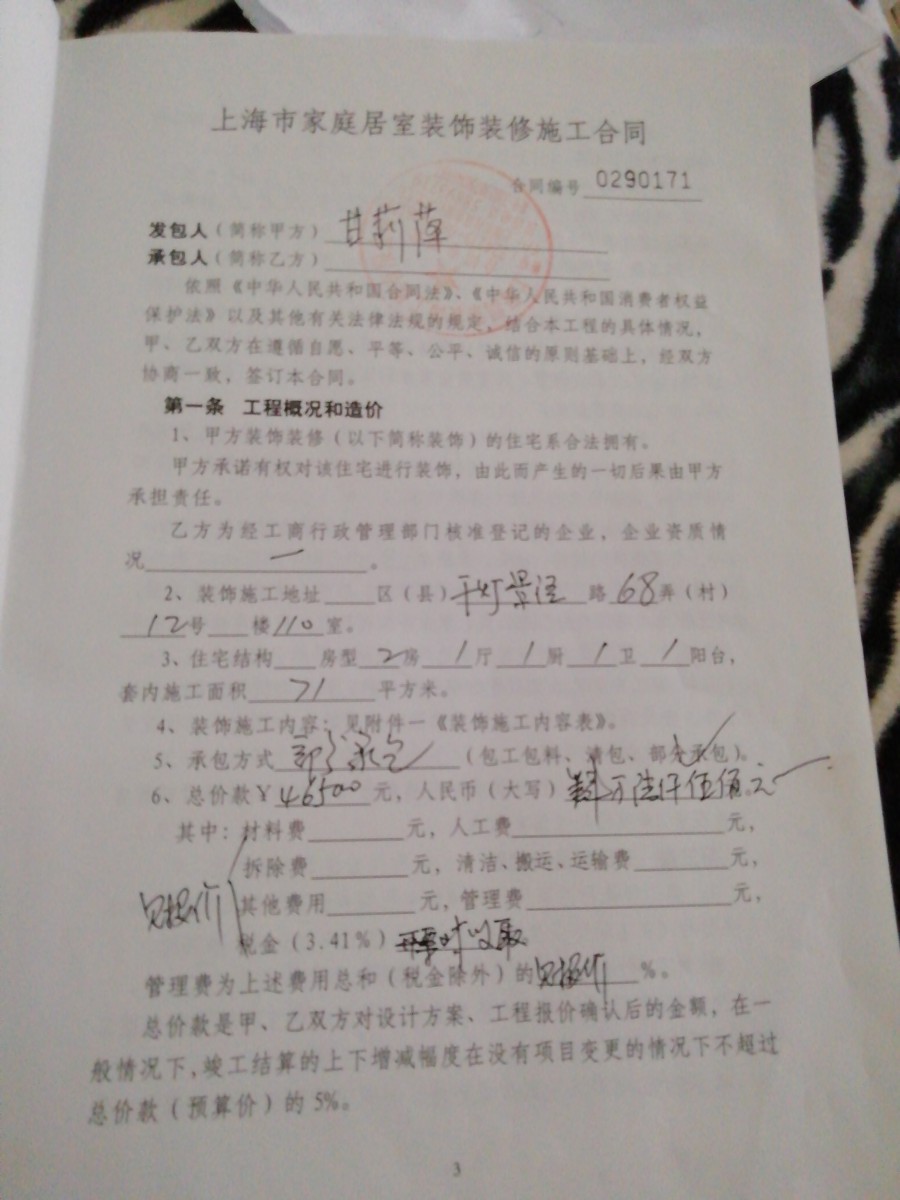 上海市家庭居室装饰装修施工合同
合同编号 0290171
发包人(简称甲方) 甘莉萍
承包人(简称乙方)
依照《中华人民共和国合同法》、《中华人民共和国消费者权益
保护法》以及其他有关法律法规的规定,结合本工程的具体情况,
甲、乙双方在遵循自愿、平等、公平、诚信的原则基础上,经双方
协商一致,签订本合同。
第一条 工程概况和造价
1、甲方装饰装修(以下简称装饰)的住宅系合法拥有。
甲方承诺有权对该住宅进行装饰,由此而产生的一切后果由甲方
承担责任。
乙方为经工商行政管理部门核准登记的企业,企业资质情
况 一 。
2、装饰施工地址____区(县)千灯景泾路 68弄(村)
12号___楼110室。
3、住宅结构___房型 2房 1厅 1厨 1卫 1阳台,
套内施工面积 71 平方米。
4、装饰施工内容:见附件一《装饰施工内容表》。
5、承包方式 部分承包 (包工包料、清包、部分承包)。
6、总价款¥46500元,人民币(大写)肆万陆仟伍佰元
其中:材料费______元,人工费______元,
拆除费______元,清洁、搬运、运输费______元,
见报价 其他费用______元,管理费______元,
税金(3.41%)
管理费为上述费用总和(税金除外)的见报价%。
总价款是甲、乙双方对设计方案、工程报价确认后的金额,在一
般情况下,竣工结算的上下增减幅度在没有项目变更的情况下不超过
总价款(预算价)的5%。
3